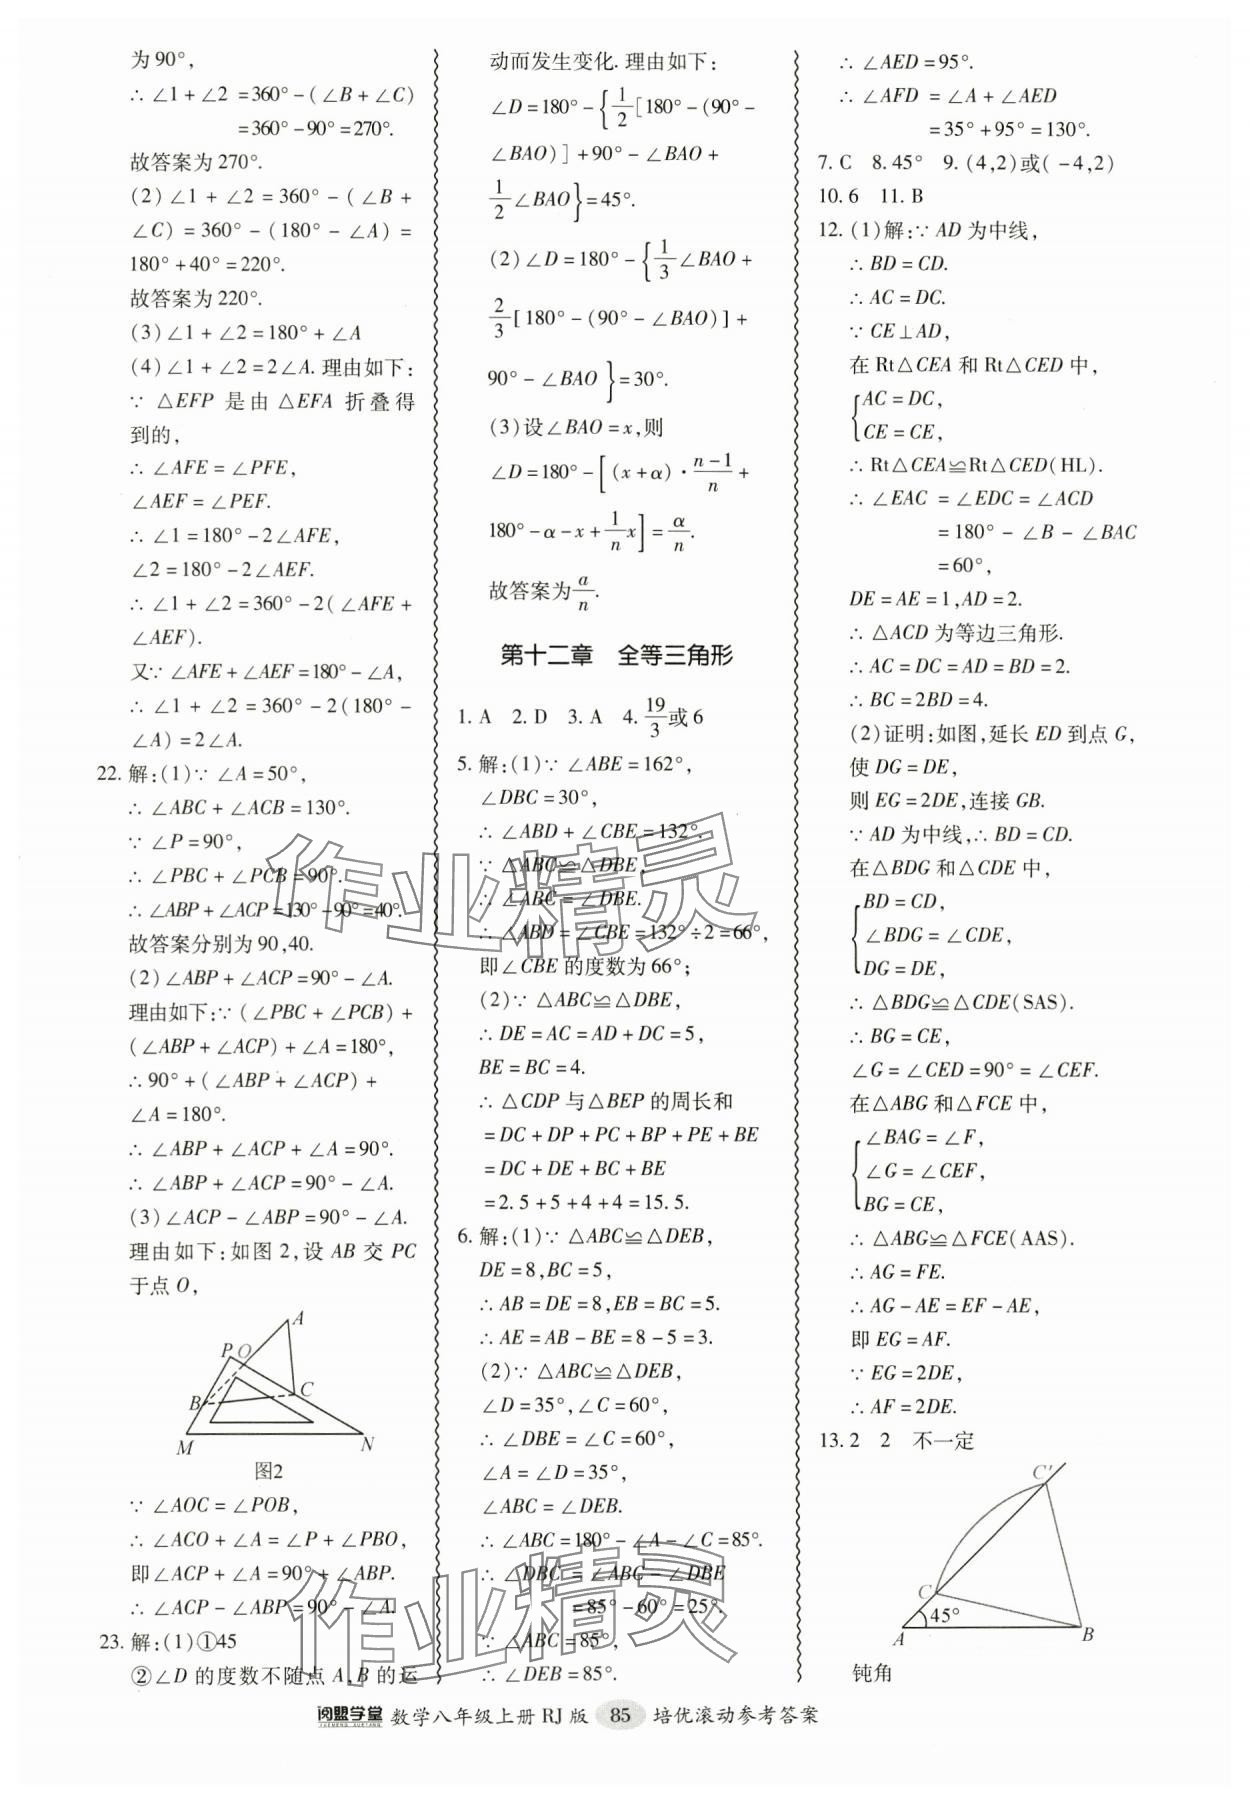 为90°,
∴ ∠1+∠2 =360°-(∠B+∠C)
=360°-90°=270°.
故答案为270°.
(2)∠1+∠2=360°-(∠B+
∠C)=360°-(180°-∠A)=
180°+40°=220°.
故答案为220°.
(3)∠1+∠2=180°+∠A
(4)∠1+∠2=2∠A.理由如下:
∵ △EFP 是由△EFA 折叠得
到的,
∴ ∠AFE=∠PFE,
∠AEF=∠PEF.
∴ ∠1=180°-2∠AFE,
∠2=180°-2∠AEF.
∴ ∠1+∠2=360°-2(∠AFE+
∠AEF).
又∵ ∠AFE+∠AEF=180°-∠A,
∴ ∠1+∠2=360°-2(180°-
∠A)=2∠A.
22. 解:(1)∵ ∠A=50°,
∴ ∠ABC+∠ACB=130°.
∵ ∠P=90°,
∴ ∠PBC+∠PCB=90°.
∴ ∠ABP+∠ACP=130°-90°=40°.
故答案分别为90,40.
(2)∠ABP+∠ACP=90°-∠A.
理由如下:∵ (∠PBC+∠PCB)+
(∠ABP+∠ACP)+∠A=180°,
∴ 90°+(∠ABP+∠ACP)+
∠A=180°.
∴ ∠ABP+∠ACP+∠A=90°.
∴ ∠ABP+∠ACP=90°-∠A.
(3)∠ACP-∠ABP=90°-∠A.
理由如下:如图2,设AB交PC
于点O,
A
P O
B C
M N
图2
∵ ∠AOC=∠POB,
∴ ∠ACO+∠A=∠P+∠PBO,
即∠ACP+∠A=90°+∠ABP.
∴ ∠ACP-∠ABP=90°-∠A.
23. 解:(1)①45
②∠D的度数不随点A,B的运
动而发生变化.理由如下:
∠D=180°-{1/2[180°-(90°-
∠BAO)]+90°-∠BAO+
1/2∠BAO}=45°.
(2)∠D=180°-{1/3∠BAO+
2/3[180°-(90°-∠BAO)]+
90°-∠BAO}=30°.
(3)设∠BAO=x,则
∠D=180°-[(x+α)·n-1/n+
180°-α-x+1/n x]=α/n.
故答案为a/n.
第十二章 全等三角形
1. A 2. D 3. A 4. 19/3或6
5. 解:(1)∵ ∠ABE=162°,
∠DBC=30°,
∴ ∠ABD+∠CBE=132°.
∵ △ABC≌△DBE,
∴ ∠ABC=∠DBE.
∴ ∠ABD=∠CBE=132°÷2=66°,
即∠CBE的度数为66°;
(2)∵ △ABC≌△DBE,
∴ DE=AC=AD+DC=5,
BE=BC=4.
∴ △CDP与△BEP的周长和
=DC+DP+PC+BP+PE+BE
=DC+DE+BC+BE
=2.5+5+4+4=15.5.
6. 解:(1)∵ △ABC≌△DEB,
DE=8,BC=5,
∴ AB=DE=8,EB=BC=5.
∴ AE=AB-BE=8-5=3.
(2)∵ △ABC≌△DEB,
∠D=35°,∠C=60°,
∴ ∠DBE=∠C=60°,
∠A=∠D=35°,
∠ABC=∠DEB.
∴ ∠ABC=180°-∠A-∠C=85°.
∴ ∠DBC=∠ABC-∠DBE
=85°-60°=25°.
∵ ∠ABC=85°,
∴ ∠DEB=85°.
∴ ∠AED=95°.
∴ ∠AFD =∠A+∠AED
=35°+95°=130°.
7. C 8. 45° 9. (4,2)或(-4,2)
10. 6 11. B
12. (1)解:∵ AD为中线,
∴ BD=CD.
∴ AC=DC.
∵ CE⊥AD,
在Rt△CEA和Rt△CED中,
{AC=DC,
CE=CE,
∴ Rt△CEA≌Rt△CED(HL).
∴ ∠EAC =∠EDC=∠ACD
=180°-∠B-∠BAC
=60°,
DE=AE=1,AD=2.
∴ △ACD为等边三角形.
∴ AC=DC=AD=BD=2.
∴ BC=2BD=4.
(2)证明:如图,延长ED到点G,
使DG=DE,
则EG=2DE,连接GB.
∵ AD为中线,∴ BD=CD.
在△BDG和△CDE中,
{BD=CD,
∠BDG=∠CDE,
DG=DE,
∴ △BDG≌△CDE(SAS).
∴ BG=CE,
∠G=∠CED=90°=∠CEF.
在△ABG和△FCE中,
{∠BAG=∠F,
∠G=∠CEF,
BG=CE,
∴ △ABG≌△FCE(AAS).
∴ AG=FE.
∴ AG-AE=EF-AE,
即EG=AF.
∵ EG=2DE,
∴ AF=2DE.
13. 2 2 不一定
C′
C
45°
A B
钝角
作业精灵
作业精灵
阅盟学堂 数学八年级上册RJ版 85 培优滚动参考答案